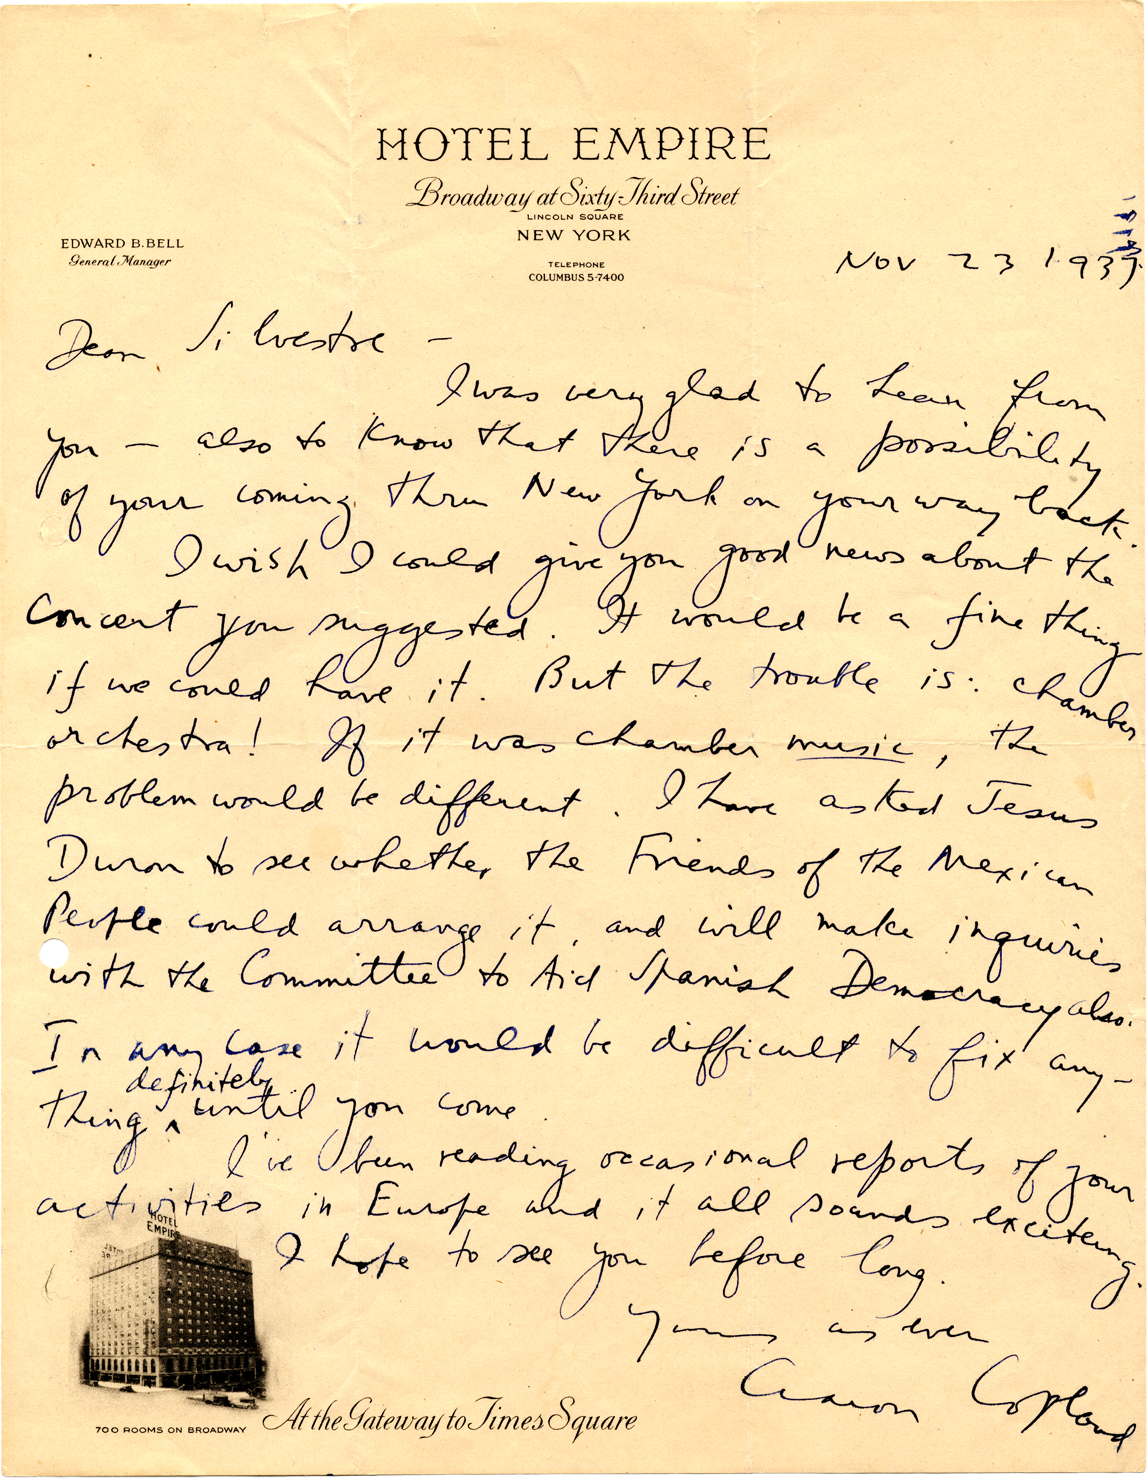 HOTEL EMPIRE
Broadway at Sixty-Third Street
LINCOLN SQUARE
NEW YORK
EDWARD B. BELL
General Manager
TELEPHONE
COLUMBUS 5-7400
Nov 23 1937.
Dear Silvestre —
I was very glad to hear from
you — also to know that there is a possibility
of your coming thru New York on your way back.
I wish I could give you good news about the
concert you suggested. It would be a fine thing
if we could have it. But the trouble is: chamber
orchestra! If it was chamber music, the
problem would be different. I have asked Jesus
Duron to see whether the Friends of the Mexican
People could arrange it, and will make inquiries
with the Committee to Aid Spanish Democracy also.
In any case it would be difficult to fix any-
definitely
thing ^ until you come.
I've been reading occasional reports of your
activities in Europe and it all sounds exciteing.
I hope to see you before long.
Yours as ever
Aaron Copland
HOTEL
EMPIRE
700 ROOMS ON BROADWAY
At the Gateway to Times Square